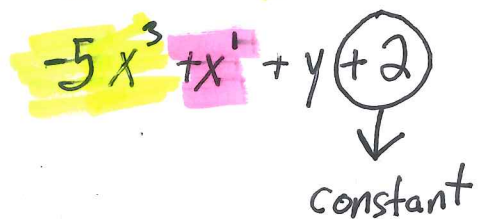 -5x³ +x¹ + y + 2
constant